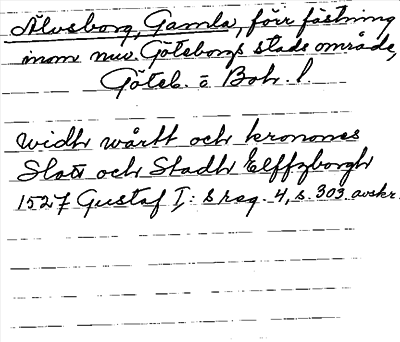 Älvsborg, Gamla, förr fästning
inom nuv. Göteborgs stads område,
Göteb. o. Boh. l.
widh wårtt och kronones
Slott och Stadh Elffzborgh
1527 Gustaf I: s reg. 4, s. 303 avskr.